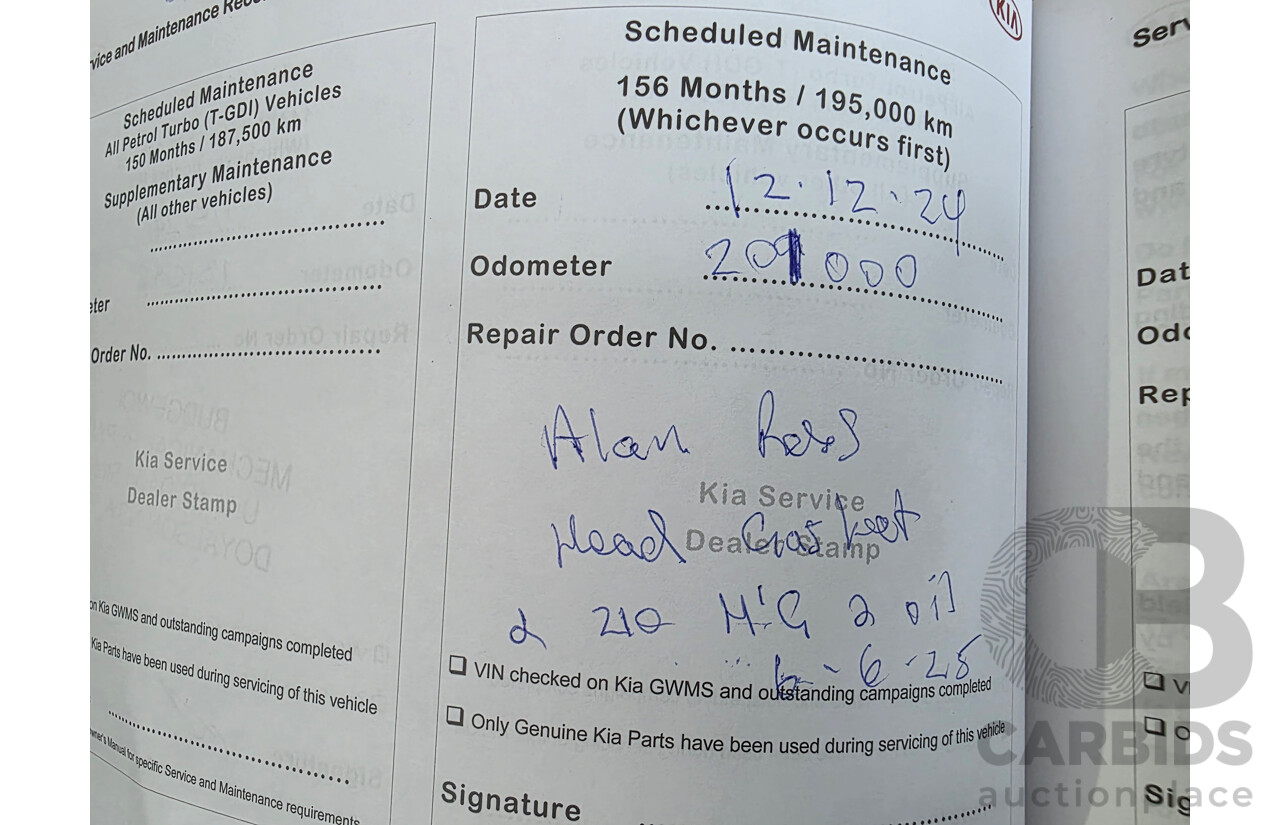 Scheduled Maintenance
All Petrol Turbo (T-GDI) Vehicles
150 Months / 187,500 km
Supplementary Maintenance
(All other vehicles)
Order No.
Kia Service
Dealer Stamp
on Kia GWMS and outstanding campaigns completed
Kia Parts have been used during servicing of this vehicle
Manual for specific Service and Maintenance requirements
KIA
Scheduled Maintenance
156 Months / 195,000 km
(Whichever occurs first)
Date 12.12.24
Odometer 201000
Repair Order No.
Alan Ross
Kia Service
Head Gasket
Dealer Stamp
210
oil
6-6-25
VIN checked on Kia GWMS and outstanding campaigns completed
Only Genuine Kia Parts have been used during servicing of this vehicle
Signature
CARBIDS
auctionplace